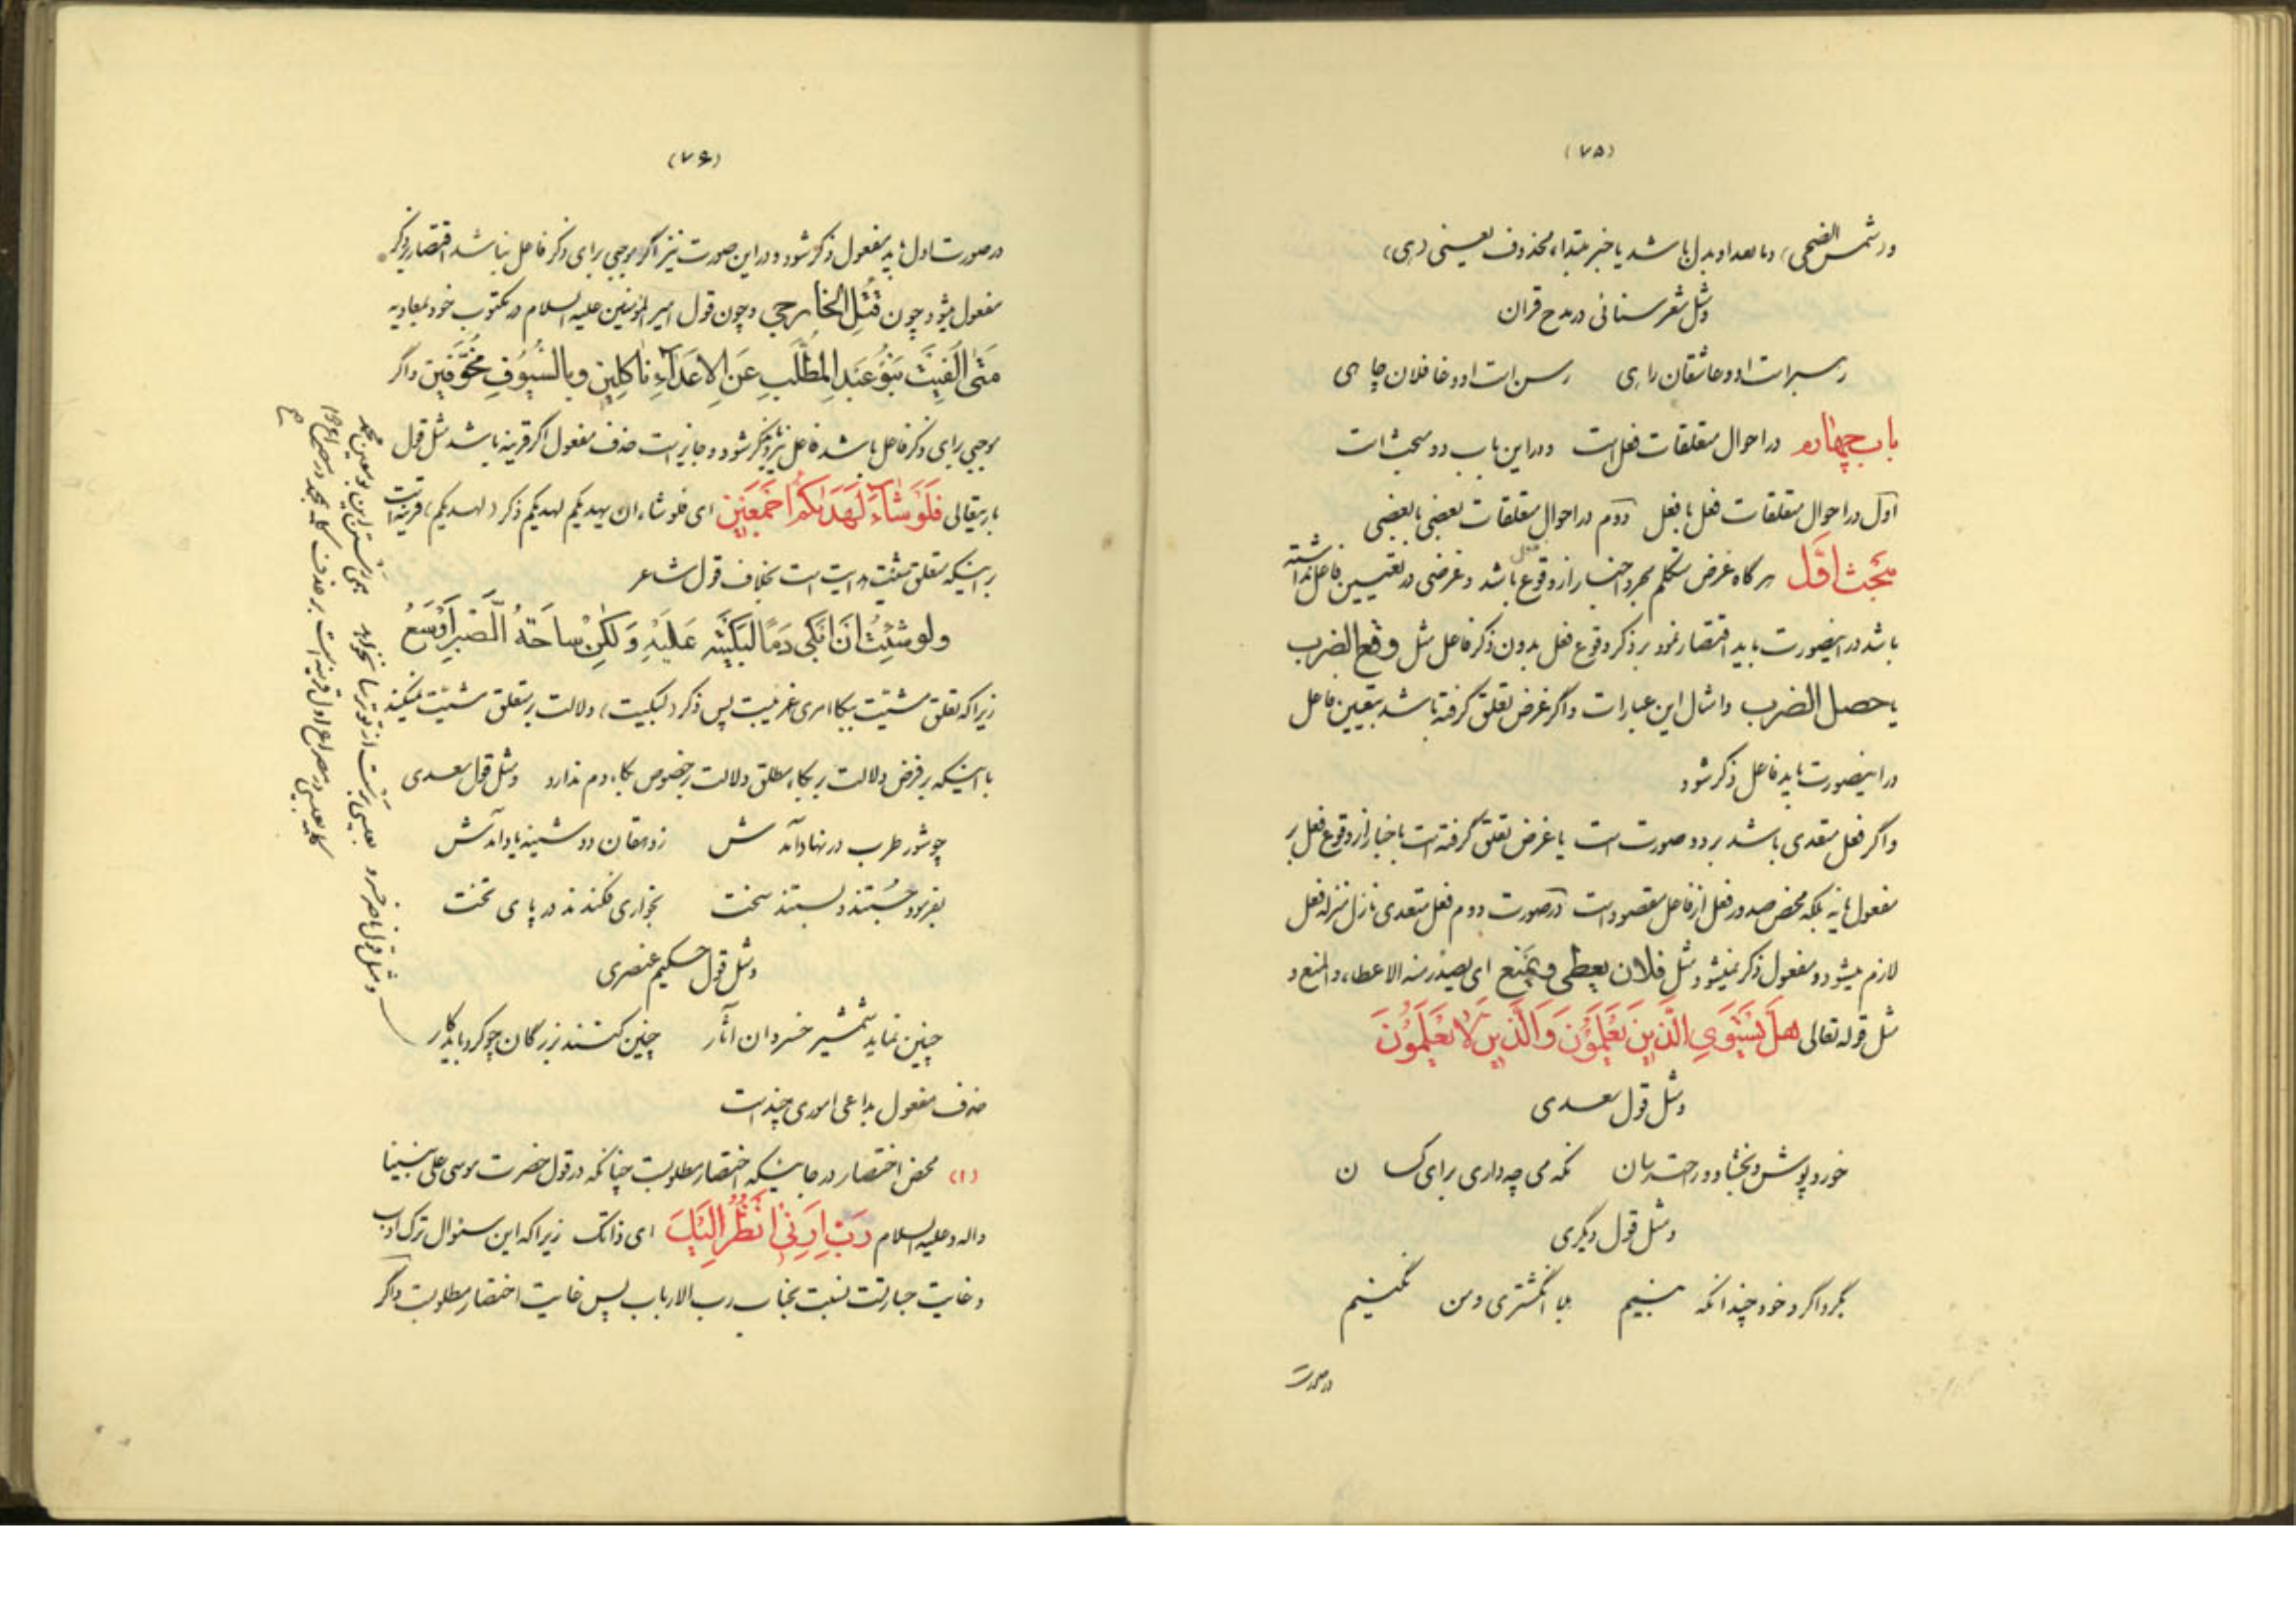 (۷۵)
و (شمس الضحی) و مابعد او بدل باشد یا خبر مبتداء محذوف یعنی (هی)
و مثل شعر سنائی در مدح قران
رهبر است او و عاشقان راهی رسن است او و غافلان چاهی
باب چهارم در احوال متعلقات فعل است و در این باب دو مبحث است
اول در احوال متعلقات فعل با فعل دوم در احوال متعلقات بعضی با بعضی
مبحث اول هر گاه غرض متکلم مجرد اخبار از وقوع فعل باشد و غرضی در تعیین فاعل نداشته
باشد در اینصورت باید اقتصار نمود بر ذکر وقوع فعل بدون ذکر فاعل مثل وقع الضرب
یا حصل الضرب و امثال این عبارات و اگر غرض تعلق گرفته باشد بتعیین فاعل
در اینصورت باید فاعل ذکر شود
و اگر فعل متعدی باشد بر دو صورت است یا غرض تعلق گرفته است باخبار از وقوع فعل بر
مفعول یا نه بلکه محض صدور فعل از فاعل مقصود است در صورت دوم فعل متعدی نازل منزله فعل
لازم میشود و مفعول ذکر نمیشود مثل فلان یعطی و یمنع ای یصدر منه الاعطاء و المنع و
مثل قوله تعالی هَل يَستَوِي الَّذِينَ يَعْلَمُونَ وَالَّذِينَ لا يَعْلَمُونَ
و مثل قول سعدی
خور و پوش و بخشا و راحت رسان نگه می چه داری برای کسان
و مثل قول دیگری
بگرداگرد خود چندانکه بینم بلا انگشتری و من نگینم
در صورت
(۷۶)
در صورت اول باید مفعول ذکر شود و در این صورت نیز اگر موجبی برای ذکر فاعل نباشد اقتصار بر ذکر
مفعول میشود چون قُتِلَ الخارجي و چون قول امیر المؤمنین علیه السلام در مکتوب خود بمعاویه
مَتى اَلْفَيْتَ بَنُو عَبْدِ المُطَّلَبِ عَنِ الاَعْدَآءِ ناكِلِينَ وبالسُّيُوفِ مُخَوَّفِينَ و اگر
موجبی برای ذکر فاعل باشد فاعل نیز ذکر شود و جایز است حذف مفعول اگر قرینه باشد مثل قول
باریتعالی فَلَوْ شَاءَ لَهَدَيكُم اَجْمَعِينَ ای فلو شاء ان یهدیکم لهدیکم ذکر (لهدیکم) قرینه است
بر اینکه متعلق مشیّت هدایت است بخلاف قول شاعر
ولو شِئْتُ اَنْ اَبْكي دَمًا لَبَكَيْتُه عَلَيْهِ وَلكِنْ ساحَةُ الصَّبْرِ اَوْسَعُ
زیرا که تعلق مشیّت ببکا امری غریبست پس ذکر (لبکیت) دلالت بر متعلق مشیّت نمیکند
با اینکه بر فرض دلالت بر بکاء مطلق دلالت بر خصوص بکاء دم ندارد و مثل قول سعدی
چو شور طرب در نهاد آمدش ز دهقان دوشینه یاد آمدش
بفرمود جُستند و بستند سخت بخواری فکندند در پای تخت
و مثل قول حکیم عنصری
چنین نماید شمشیر خسروان آثار چنین کنند بزرگان چو کرد باید کار
حذف مفعول بداعی اموری چند است
(۱) محض اختصار در جائیکه اختصار مطلوبست چنانکه در قول حضرت موسی علی نبینا
و اله و علیه السلام رَبِّ اَرِنِي اَنْظُرْ اِلَيْكَ ای ذاتک زیرا که این سئوال ترک ادب
و غایت جسارتست نسبت بجناب رب الارباب پس غایت اختصار مطلوبست و اگر
و مثل قول ناصر خسرو